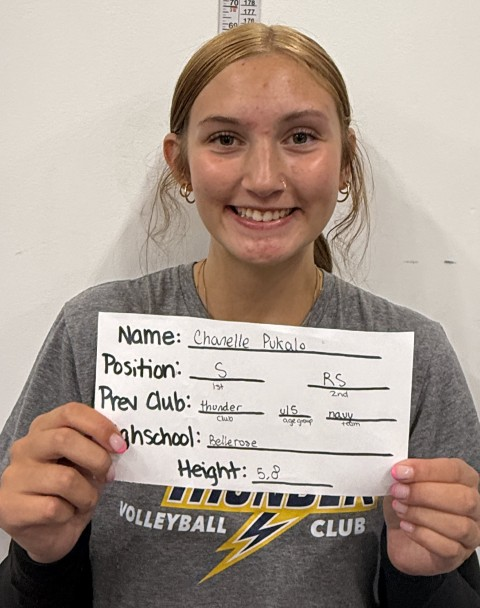 70 178
177
69
Name: Chanelle Pukalo
Position: S RS
1st 2nd
Prev Club: thunder u15 navy
club age group team
ghschool: Bellerose
Height: 5,8
THUNDER
VOLLEYBALL CLUB